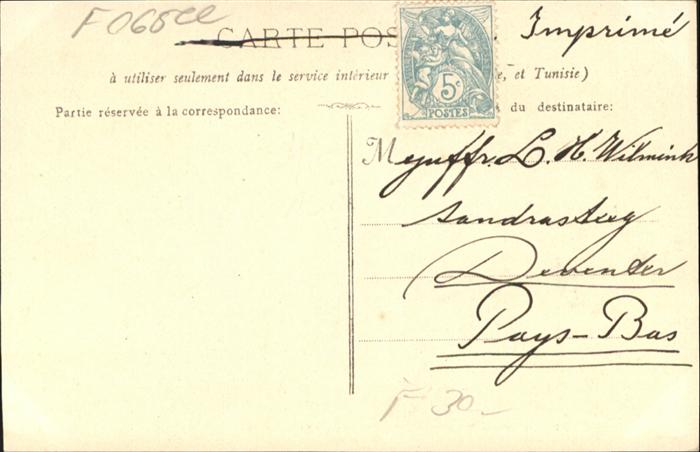 F 065ce
CARTE POS Imprimé
à utiliser seulement dans le service intérieur e, et Tunisie)
Partie réservée à la correspondance: du destinataire:
5c
POSTES
Mejuffr. L. H. Wilmink
Sandrasteeg
Deventer
Pays-Bas
F 30-